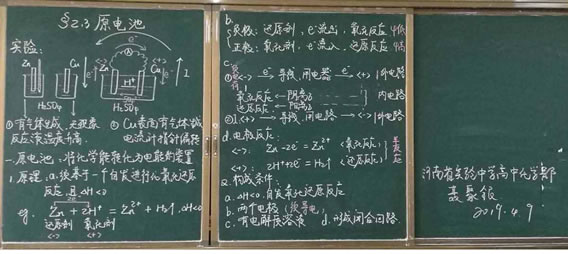 §2.3 原电池
实验:
Zn Cu
H₂SO₄
<-> e⁻ A e⁻ <+>
Zn Cu
H⁺
H₂SO₄
I
①有气体生成、无现象
反应液温度升高.
② Cu表面有气体生成
电流计指针偏转
一.原电池:将化学能转化为电能的装置
1.原理:a.依赖于一个自发进行的氧化还原
反应,且△H<0
eg. Zn + 2H⁺ = Zn²⁺ + H₂↑ △H<0
还原剂 氧化剂
<-> <+>
b.
负极:还原剂,e⁻流出,氧化反应
正极:氧化剂,e⁻流入,还原反应
c.
<-> e⁻ 导线、用电器 e⁻ <+> 外电路
氧化反应 ← 阴离子
还原反应 ← 阳离子 内电路
I <+> → 导线、用电器 → <-> 外电路
d.电极反应
<->: Zn - 2e⁻ = Zn²⁺ <氧化反应>
<+>: 2H⁺ + 2e⁻ = H₂↑ <还原反应>
2.构成条件:
a. △H<0,自发氧化还原反应
b. 两个电极(须导电)
c. 有电解质溶液 d.形成闭合回路
河南省实验中学高中化学部
聂聚银
2019.4.9